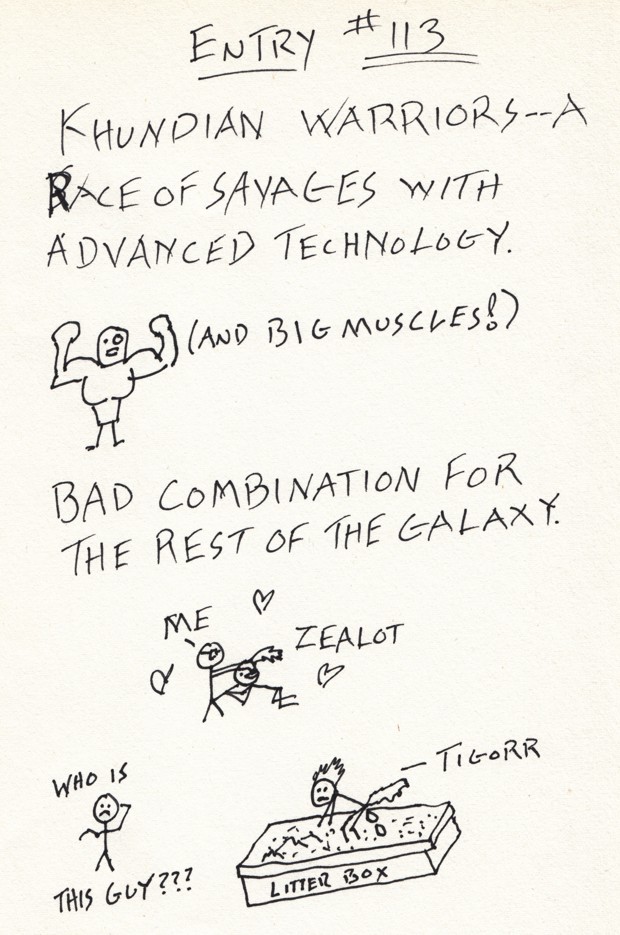 ENTRY #113
KHUNDIAN WARRIORS--A
RACE OF SAVAGES WITH
ADVANCED TECHNOLOGY.
(AND BIG MUSCLES!)
BAD COMBINATION FOR
THE REST OF THE GALAXY.
ME
ZEALOT
TIGORR
WHO IS
THIS GUY???
LITTER BOX